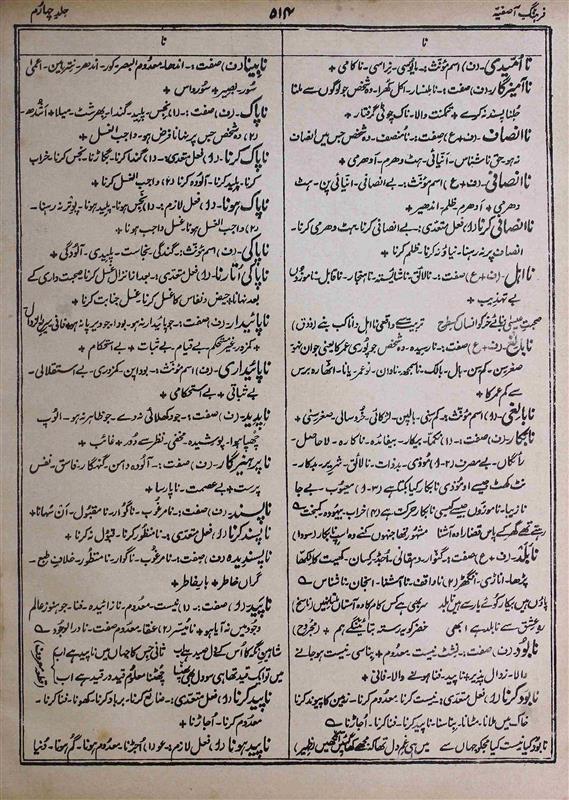 فرہنگ آصفیہ
۵۱۴
جلد چہارم
نا
نا
نا اُمیدی - (ف) اسم مؤنث :- مایوسی - نراسی - ناکامی +
نا آمیزگار - (ف) صفت :- نا ملنسار - اکل کھرا - وہ شخص جو لوگوں سے ملنا
جلنا پسند نہ کرے + تمکنت والا - ناک چوٹی گرفتار +
نا انصاف - (ف + ع) صفت :- نا منصف - وہ شخص جس میں انصاف
نہ ہو - حق ناشناس - انیائی - ہٹ دھرم - ادھرمی +
نا انصافی - (ف + ع) اسم مؤنث :- بے انصافی - انیائی پن - ہٹ
دھرمی + ادھرم - ظلم - اندھیر +
نا انصافی کرنا - (ا) فعل متعدی :- بے انصافی کرنا - ہٹ دھرمی کرنا -
انصاف پر نہ رہنا - نیاؤ نہ کرنا - ظلم کرنا +
نا اہل - (ف + ع) صفت :- نالائق - ناشایستہ - ناہنجار - ناقابل - ناموزوں
بے تہذیب +
صحبت عیسیٰ بنائے خر کو انساں کس طرح تربیت سے واقعی نا اہل دانا کب بنے (ذوق)
نابالغ - (ف + ع) صفت :- نارسیدہ - وہ شخص جو پوری عمر کا یعنی جوان نہ ہو
صغر سن - کم سن - بال - بالک - ناسمجھ - نادان - نو عمر - یانا - اٹھارہ برس
سے کم عمر کا +
نابالغی - (ا) اسم مؤنث :- کم سنی - بالپن - لڑکائی - خرد سالی - صغر سنی +
نابکار - (ف) صفت :- (۱) نکما - بیکار - بیفائدہ - ناکارہ - لا حاصل -
رائگاں - بے مصرف (۲ - ا) موذی - بد ذات - نالائق - شریر - بدکار -
نٹ کھٹ جیسے او موذی نابکار کیا بکتا ہے (۳ - ا) معیوب - بے جا
نازیبا - ناموزوں جیسے کیسی نابکار حرکت ہے (۴) خراب - بیہودہ - کمبخت ؎
رہتے تھے گھر کے پاس قضا را وہ آشنا مشہور تھا جنہوں کنے وہ اسپ نابکار (سودا)
نابلد - (ف + ع) صفت :- گنوار - دہقانی - اجڈ - کسان - کھیت کا لکھا
پڑھا - اناڑی - انگھڑ (۲) ناواقف - نا آشنا - انجان - ناشناس ؎
پاؤں ہیں بیکار گو نے پا رہے ہیں نابلد سر بھی ہے کس کام کا وہ آستاں ملتا نہیں (ناسخ)
رہ عشق سے نابلد ہے ابھی خضر کو یہ رستہ بتائیں گے ہم + (مجروح)
نابود - (ف) صفت :- نشٹ - نیست - معدوم + بناسی - نیست ہو جانے
والا - زوال پذیر - بناپید - فنا ہونے والا - فانی +
نابود کرنا - (ا) فعل متعدی :- نیست کرنا - معدوم کرنا - زمین کا پیوند کرنا
خاک میں ملانا - مٹانا - بناسنا - ناپید کرنا - فنا کرنا - اجاڑنا ؎
نابود کیا نیست کیا مجکو جہاں سے
نابینا - (ف) صفت :- اندھا - معدوم البصر - کور - اندھر - نیتر ہین - اعمیٰ
سور - بصیر + سورداس +
ناپاک - (ف) صفت :- (۱) نجس - پلید - گندا - بھرشٹ - میلا + اشدھ -
(۲) وہ شخص جس پر نہانا فرض ہو - واجب الغسل +
ناپاک کرنا - (ا) فعل متعدی :- (۱) گندا کرنا - بگاڑنا - نجس کرنا - خراب
کرنا - پلید کرنا - آلودہ کرنا (۲) واجب الغسل کرنا +
ناپاک ہونا - (ا) فعل لازم :- (۱) نجس ہونا - پلید ہونا - پوتر نہ رہنا -
(۲) واجب الغسل ہونا - غسل واجب ہونا +
ناپاکی - (ف) اسم مؤنث :- گندگی - نجاست - پلیدی - آلودگی +
ناپاکی اُتارنا - (ا) فعل متعدی :- بعد انزال غسل کرنا - صحبت داری کے
بعد نہانا - حیض و نفاس کا غسل کرنا - غسل جنابت کرنا +
ناپائیدار - (ف) صفت :- جو پائیدار نہ ہو - بودا - جو دیر پا نہ ہو - فانی - سریع الزوال
+ کمزور - غیر مستحکم - بے قیام - بے ثبات + بے استحکام +
ناپائیداری - (ف) اسم مؤنث :- بودا پن - کمزوری - بے استقلالی -
بے ثباتی + بے استحکامی +
ناپدید - (ف) صفت :- جو دکھلائی نہ دے - جو ظاہر نہ ہو - الوپ
چھپا ہوا - پوشیدہ - مخفی - نظر سے دور + غائب +
ناپرہیزگار - (ف) صفت :- آلودہ دامن - گنہگار - فاسق - نفس
پرست + بے عصمت - ناپارسا +
ناپسند - (ف) صفت :- نا مرغوب - ناگوار - نامقبول - اَن سُہاتا +
ناپسند کرنا - (ا) فعل متعدی :- نا منظور کرنا - قبول نہ کرنا +
ناپسندیدہ - (ف) صفت :- نا مرغوب - ناگوار - نامنظور - خلاف طبع -
گراں خاطر + بار خاطر +
ناپید - (ا) صفت :- (۱) نیست - معدوم - نا زائیدہ - فنا - جو ہنوز عالم
وجود میں نہ آیا ہو + نا میسر (۲) عنقا - معدوم صفت - نادر الوجود ؎
ناپید کرنا - (ا) فعل متعدی :- ضائع کرنا - برباد کرنا - کھونا - فنا کرنا -
معدوم کرنا - اجاڑنا +
ناپید ہونا - (ا) فعل لازم :- دور - اُجڑنا - معدوم ہونا - گم ہونا - دُنیا